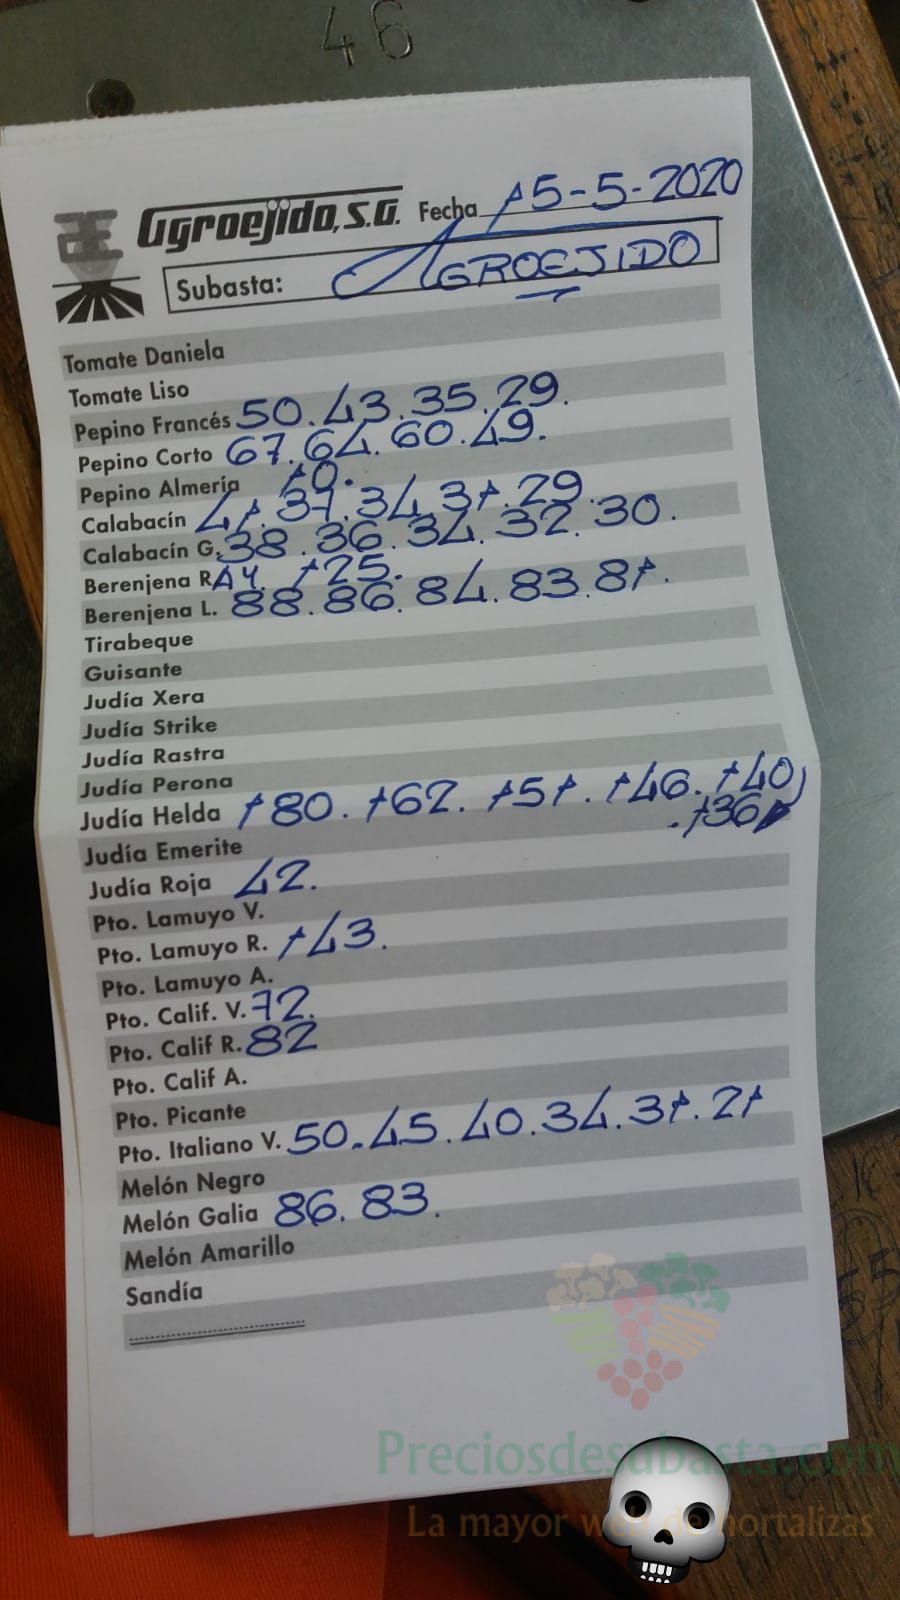 46
Agroejido, S.A. Fecha 15-5-2020
Subasta: AGROEJIDO
Tomate Daniela
Tomate Liso
Pepino Francés 50. 43. 35. 29.
Pepino Corto 67. 64. 60. 49.
Pepino Almería 10.
Calabacín 41. 37. 34. 31. 29.
Calabacín G. 38. 36. 34. 32. 30.
Berenjena RAY. 125.
Berenjena L. 88. 86. 84. 83. 81.
Tirabeque
Guisante
Judía Xera
Judía Strike
Judía Rastra
Judía Perona
Judía Helda 180. 162. 151. 146. 140
. 136
Judía Emerite
Judía Roja 42.
Pto. Lamuyo V.
Pto. Lamuyo R. 143.
Pto. Lamuyo A.
Pto. Calif. V. 72.
Pto. Calif R. 82
Pto. Calif A.
Pto. Picante
Pto. Italiano V. 50. 45. 40. 34. 31. 21
Melón Negro
Melón Galia 86. 83.
Melón Amarillo
Sandía
Preciosdesubasta.com
La mayor web de hortalizas